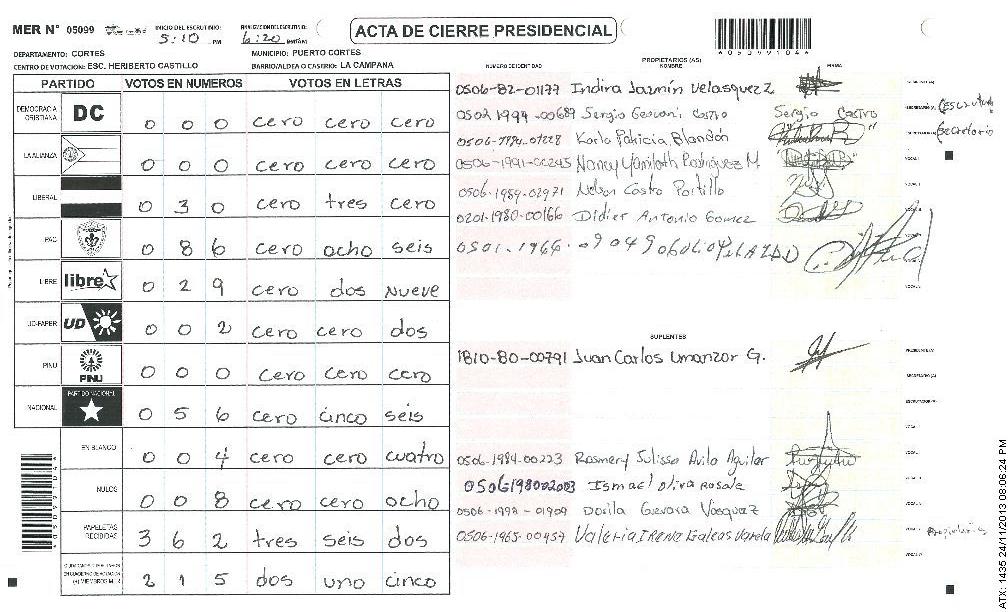 MER N° 05099 INICIO DEL ESCRUTINIO: 5:10 PM FINALIZACION DEL ESCRUTINIO: 6:20 ACTA DE CIERRE PRESIDENCIAL
DEPARTAMENTO: CORTES MUNICIPIO: PUERTO CORTES
CENTRO DE VOTACION: ESC. HERIBERTO CASTILLO BARRIO/ALDEA O CASERIO: LA CAMPANA
PARTIDO VOTOS EN NUMEROS VOTOS EN LETRAS
DEMOCRACIA CRISTIANA DC 0 0 0 cero cero cero
LA ALIANZA 0 0 0 cero cero cero
LIBERAL 0 3 0 cero tres cero
PAC 0 8 6 cero ocho seis
LIBRE libre 0 2 9 cero dos nueve
UD-FAPER UD 0 0 2 cero cero dos
PINU PINU 0 0 0 cero cero cero
NACIONAL PARTIDO NACIONAL 0 5 6 cero cinco seis
EN BLANCO 0 0 4 cero cero cuatro
NULOS 0 0 8 cero cero ocho
PAPELETAS RECIBIDAS 3 6 2 tres seis dos
2 1 5 dos uno cinco
PROPIETARIOS (AS)
NUMERO DE IDENTIDAD NOMBRE FIRMA
0506-82-01177 Indira Jazmín Velasquez Z
0502 1994-00689 Sergio Castro Sergio Castro
Karla Patricia Blandón
0506-1991-00245 Nancy Rodriguez M.
0506-1989-02971 Nelson Castro Portillo
0201-1980-00166 Didier Antonio Gomez
0501-1966-
Escrutador
Secretario
SUPLENTES
1810-80-00791 Juan Carlos Umanzor G.
0506-1984-00223 Rosmery Julissa Avila Aguilar
0506198002003 Ismael Oliva Rosale
0506-1998-01909 Dorila Guevara Vasquez
0506-1965-00457 Valeria Irene Varela
ATX: 1435 24/11/2013 08:06:24 PM